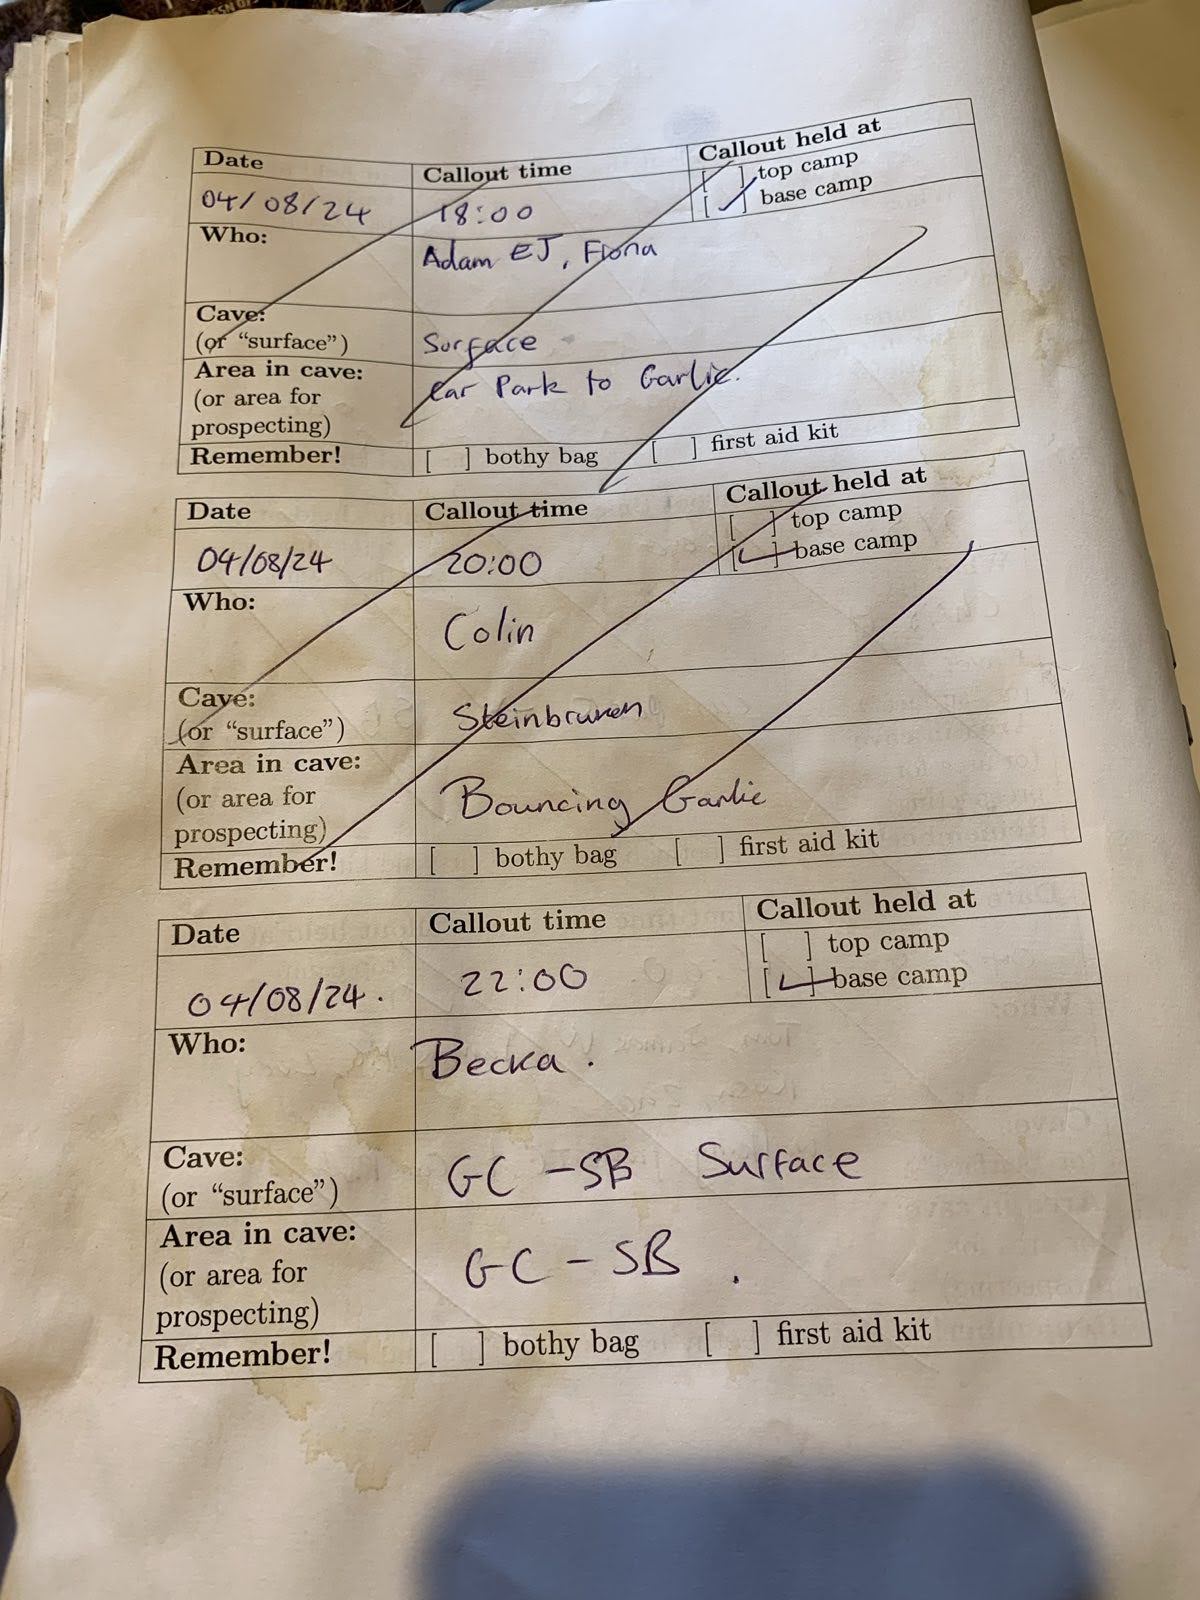 Date Callout time Callout held at
[ ] top camp
04/08/24 18:00 [✓] base camp
Who: Adam EJ, Fiona
Cave:
(or “surface”) Surface
Area in cave: Car Park to Garlic.
(or area for
prospecting)
Remember! [ ] bothy bag [ ] first aid kit
Date Callout time Callout held at
[ ] top camp
04/08/24 20:00 [✓] base camp
Who: Colin
Cave:
(or “surface”) Steinbruken
Area in cave:
(or area for Bouncing Garlic
prospecting)
Remember! [ ] bothy bag [ ] first aid kit
Date Callout time Callout held at
[ ] top camp
04/08/24. 22:00 [✓] base camp
Who: Becka.
Cave: GC - SB Surface
(or “surface”)
Area in cave:
(or area for GC - SB.
prospecting)
Remember! [ ] bothy bag [ ] first aid kit